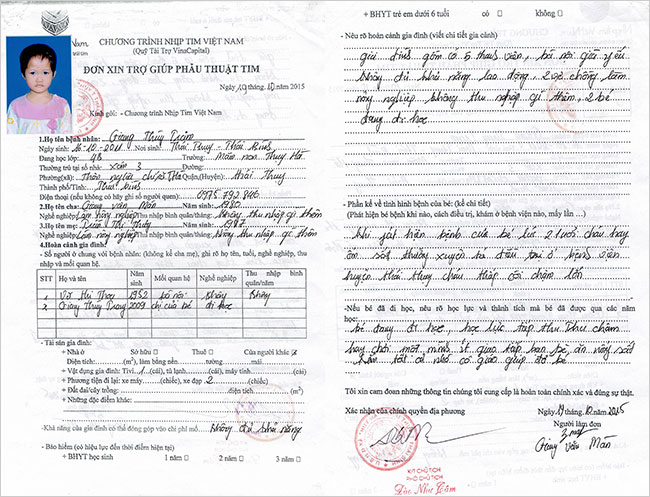 CHƯƠNG TRÌNH NHỊP TIM VIỆT NAM
(Quỹ Tài Trợ VinaCapital)
ĐƠN XIN TRỢ GIÚP PHẪU THUẬT TIM
Ngày 10 / 10 / 2015
Kính gửi: - Chương trình Nhịp Tim Việt Nam
1.Họ tên bệnh nhân: Giang Thùy Trâm
Ngày sinh: 16-10-2011 Nơi sinh: Thái Thụy - Thái Bình
Đang học lớp: 4B Trường: Mầm non Thụy Hà
Thường trú tại số nhà: xóm 3 Đường:
Phường(xã): Quận,(Huyện): Thái Thụy
Thành phố/Tỉnh: Thái Bình
Điện thoại (nếu không có hãy gi số người quen): 0975.792.846
2.Họ tên cha: Giang Văn Mân Năm sinh: 1980
Nghề nghiệp: Làm nông nghiệp Thu nhập bình quân/tháng: Không thu nhập gì thêm
3.Họ tên mẹ: Năm sinh: 1987
Nghề nghiệp: Làm nông nghiệp Thu nhập bình quân/tháng: Không thu nhập gì thêm
4.Hoàn cảnh gia đình:
- Số người ở chung với bệnh nhân: (không kể cha mẹ), ghi rõ họ tên, tuổi, nghề nghiệp, thu
nhập và mối quan hệ.
STT Họ và tên Năm sinh Mối quan hệ Nghề nghiệp Thu nhập bình quân/năm
1 1952 bà nội Không Không
2 Giang Thùy Trang 2009 chị của bé đi học
- Tài sản gia đình:
+ Nhà ở Sở hữu □ Thuê □ Của người khác
Diện tích: (m²), làm bằng nền tường mái
+ Vật dụng gia đình: Tivi. 1 (cái), tủ lạnh (cái), máy tính (cái)
+ Phương tiện đi lại: xe máy (chiếc), xe đạp 2 (chiếc)
+ Đất đai/cây trồng: diện tích (m²)
+ Những đặc điểm khác:
-Khả năng của gia đình có thể đóng góp vào chi phí mổ. Không đủ khả năng
- Bảo hiểm (có hiệu lực đến thời điểm hiện tại)
+ BHYT học sinh 1 năm □ 2 năm □ 3 năm □
+ BHYT trẻ em dưới 6 tuổi có □ không □
- Nêu rõ hoàn cảnh gia đình (viết chi tiết gia cảnh)
gia đình gồm có 5 thành viên, bà nội già yếu
không đủ khả năng lao động, 2 vợ chồng làm
nông nghiệp không thu nhập gì thêm, 2 bé
đang đi học
- Phần kể về tình hình bệnh của bé: (kể chi tiết)
(Phát hiện bé bệnh khi nào, cách điều trị, khám ở bệnh viện nào, mấy lần …)
khi phát hiện bệnh của bé lúc 2 tuổi cháu hay
ốm sốt thường xuyên tại bệnh viện
huyện Thái Thụy cháu thấp còi chậm lớn
-Nếu bé đã đi học, nêu rõ học lực và thành tích mà bé được qua các năm
học
bé đang đi học, học lực tiếp thu chậm
hay chơi một mình ít giao tiếp bạn bè,
cô giáo giúp đỡ bé
Tôi xin cam đoan những thông tin chúng tôi cung cấp là hoàn toàn chính xác và đúng sự thật.
Xác nhận của chính quyền địa phương Ngày 19/12/2015
Người làm đơn
Giang Văn Mân
K/T CHỦ TỊCH
PHÓ CHỦ TỊCH
Đào Như Cẩm